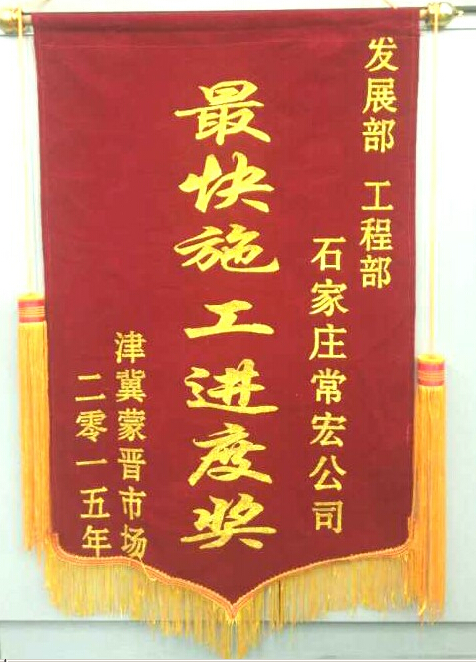 发展部 工程部
石家庄常宏公司
最快施工进度奖
津冀蒙晋市场
二零一五年